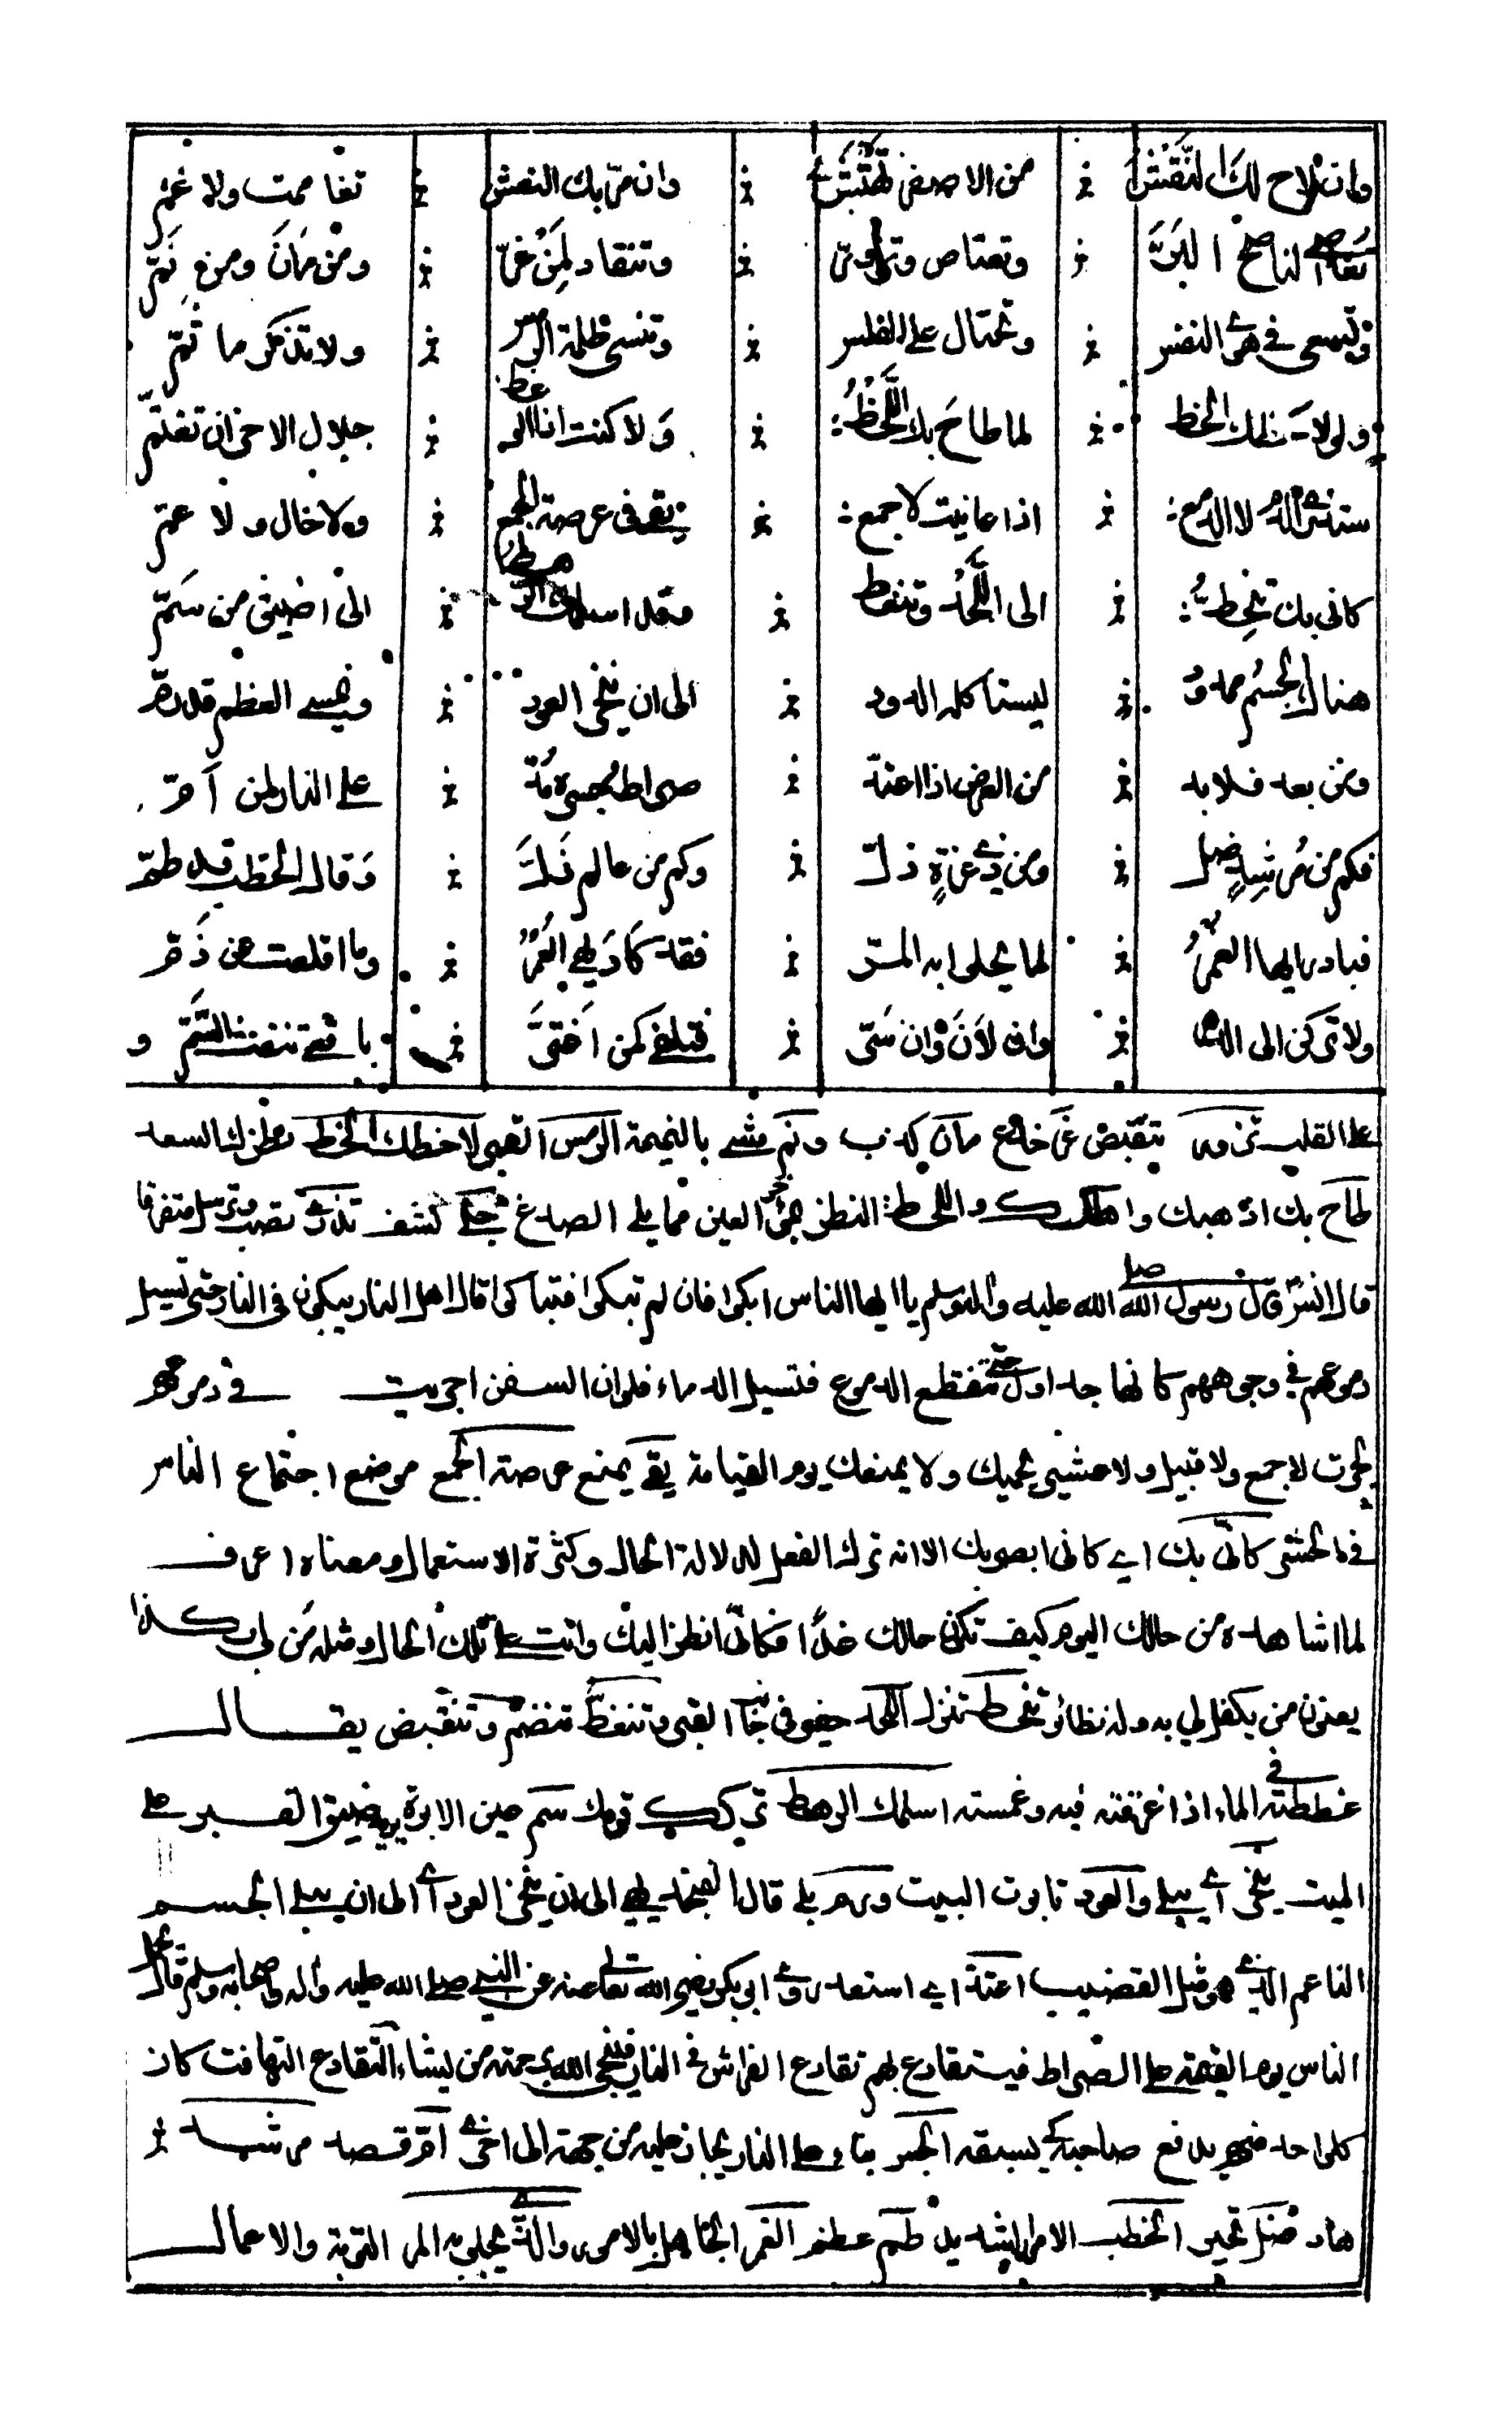 وان لاح لك النقش من الاصفر تهتش وان مر بك النعش تغاممت ولا غم
تعاصي الناصح البر وتعتاص وتزور وتنقاد لمن غر ومن مان ومن نم
وتسعى في هوى النفس وتحتال على الفلس وتنسى ظلمة الرمس ولا تذكر ما ثم
ولو لاحظك الحظ لما طاح بك اللحظ ولا كنت اذا الوعظ جلا الاحزان تغتم
ستذري الدم لا الدمع اذا عاينت لا جمع يقي في عرصة الجمع ولا خال ولا عم
كاني بك تنحط الى اللحد وتنغط وقد اسلمك الرهط الى اضيق من سم
هناك الجسم ممدود ليستاكله الدود الى ان ينخر العود ويمسي العظم قد رم
ومن بعد فلا بد من العرض اذا اعتد صراط جسره مد على النار لمن ام
فكم من مرشد ضل ومن ذي عزة ذل وكم من عالم زل وقال الخطب قد طم
فبادر ايها الغمر لما يحلو به المر فقد كاد يهي العمر وما اقلعت عن ذم
ولا تركن الى الدهر وان لان وان سر فتلفى كمن اغتر بافعى تنفث السم و
على القلب تزور تنقبض غر خادع مان كذب ونم مشى بالنميمة الرمس القبر لاحظك الحظ السعد
طاح بك اذهبك واهلكك واللحظ النظر بمؤخر العين مما يلي الصدغ جلا كشف تذري تصب وترسل متفرقا
قال انس قال رسول الله صلى الله عليه واله وسلم يا ايها الناس ابكوا فان لم تبكوا فتباكوا قال اهل النار يبكون في النار حتى تسيل
دموعهم في وجوههم كانها جداول حتى تنقطع الدموع فتسيل الدماء فلو ان السفن اجريت في دموعهم
لجرت لا جمع ولا قبيل ولا عشير يحميك ولا يمنعك يوم القيامة يقي يمنع عرصة الجمع موضع اجتماع الناس
في الحشر كاني بك اي كاني ابصر بك الا انه ترك الفعل لدلالة الحال وكثرة الاستعمال ومعناه اعرف
لما اشاهده من حالك اليوم كيف تكون حالك غدا فكاني انظر اليك وانت على تلك الحال ومثله من لي بكذا
يعنون من يكفل لي به وله نظائر تنحط تنزل اللحد حفر في جانب القبر وتنغط تنضم وتنقبض يقال
غططته في الماء اذا غرقته فيه وغمسته اسلمك الرهط تركك قومك سم عين الابرة يريد ضيق القبر على
الميت ينخر اي يبلى والعود تابوت الميت ورم بلي قال الى ان ينخر العود اي الى ان يبلى الجسم
الناعم الذي هو مثل القضيب اعتد اي استعد روى ابي بكر رضي الله تعالى عنه عن النبي صلى الله عليه واله واصحابه وسلم قال يحمل
الناس يوم القيمة على الصراط فيتقادع بهم تقادع الفراش في النار فينجي الله برحمته من يشاء التقادع التهافت كان
كل واحد منهم يدفع صاحبه كي يسبقه الجسر بناء على النار يجاز عليه من جهة الى اخرى ام قصد مرشد
هاد ضل تحير الخطب الامر الشديد طم عظم الغمر الجاهل بالامور والذي يحلو به المر التوبة والاعمال